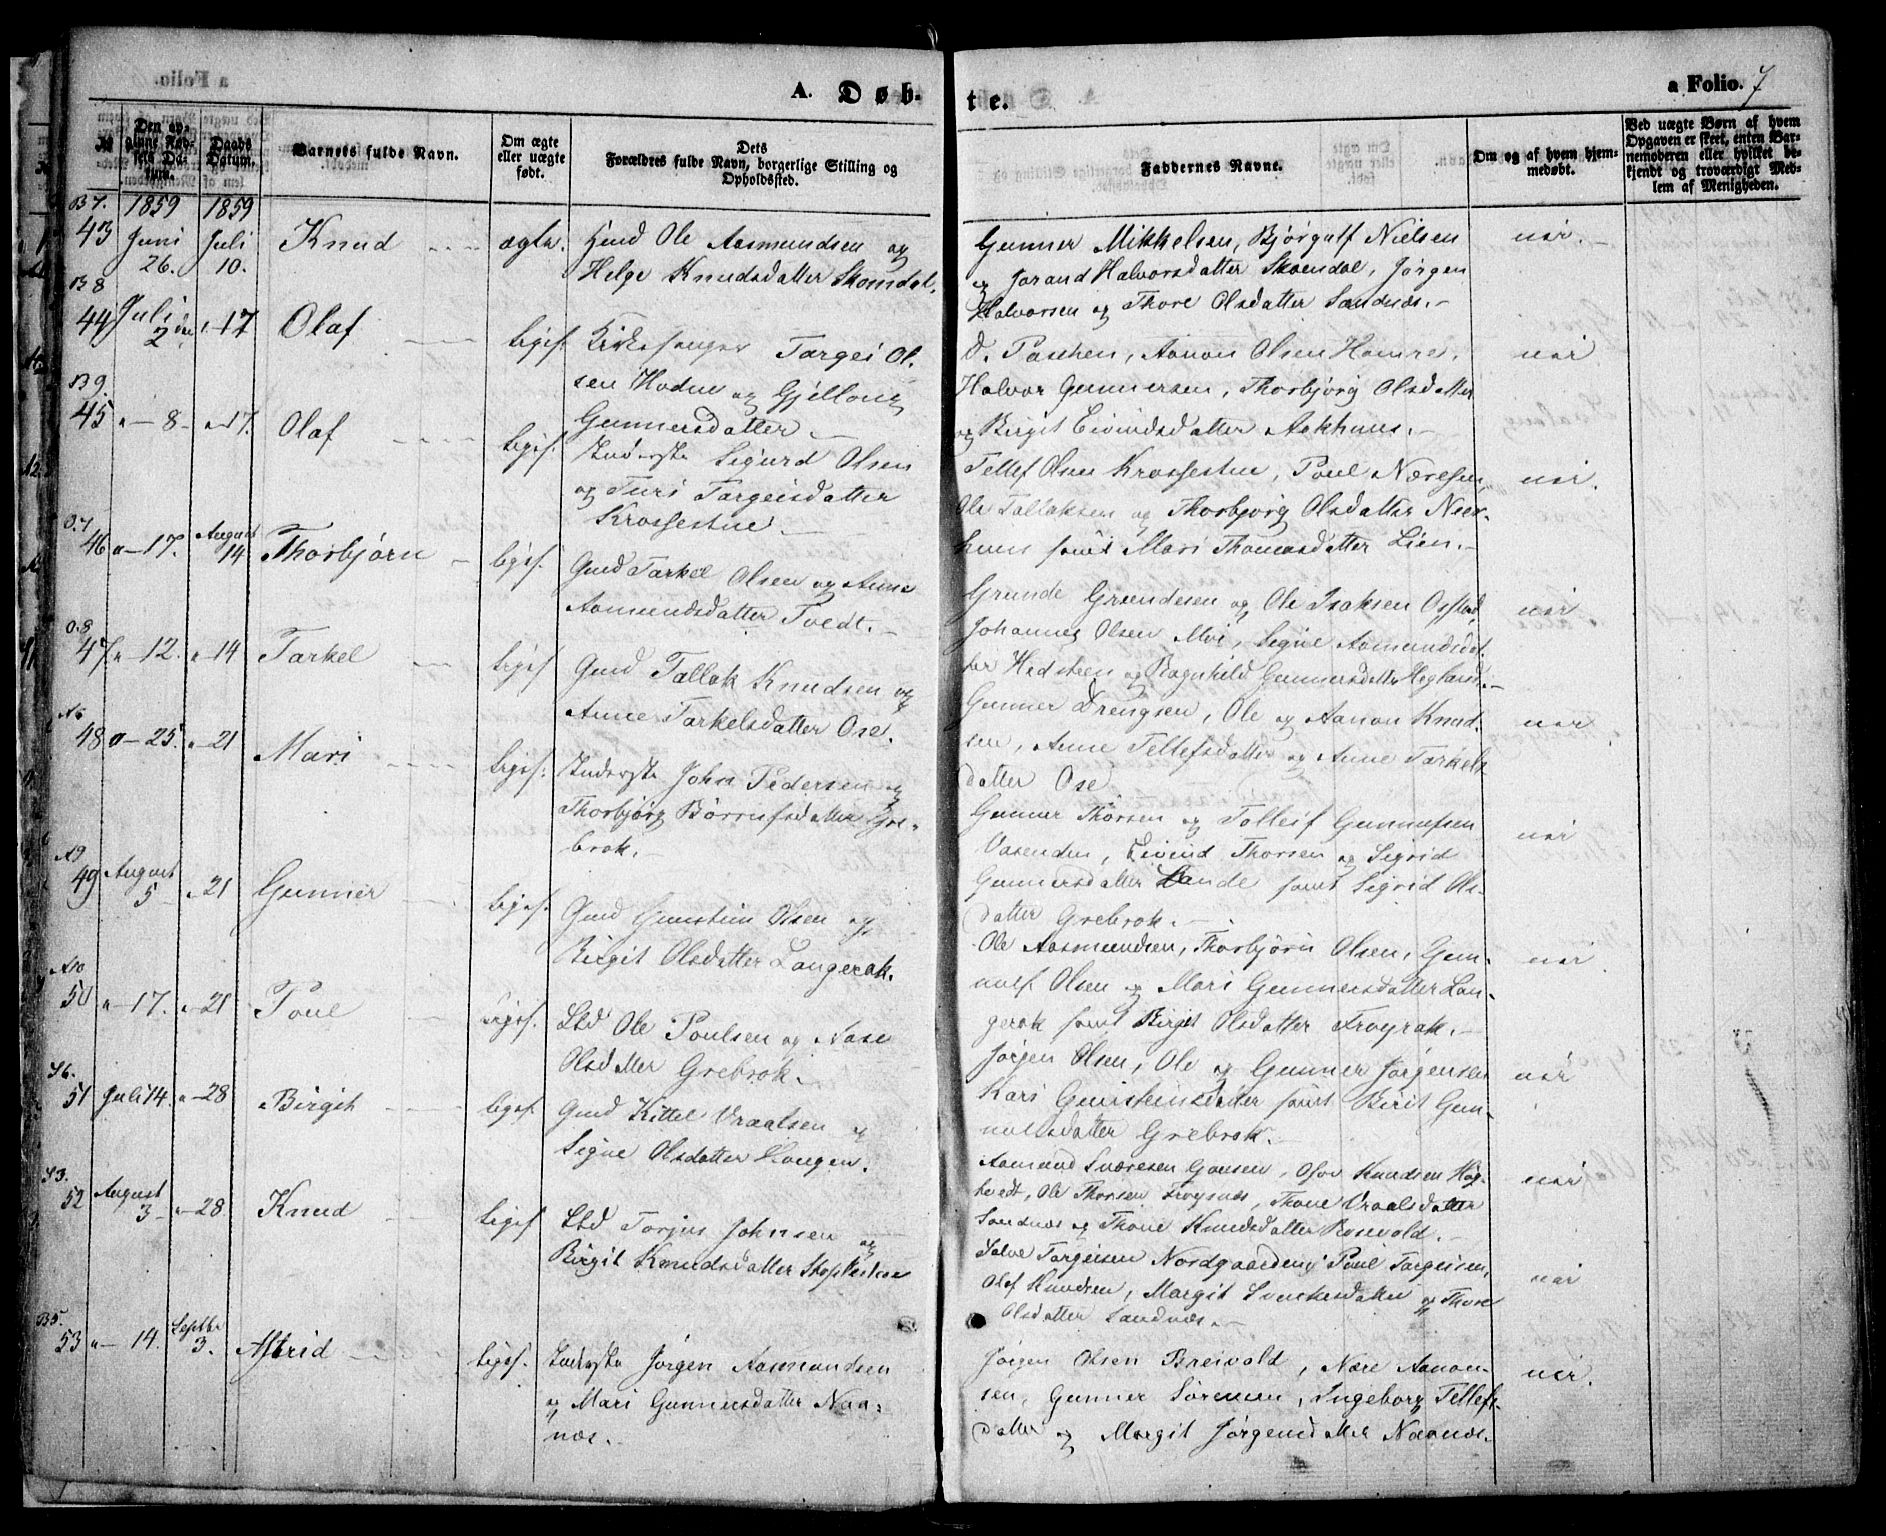 A. Døb-
te.
a Folio. 7
№
Den opgivne Fødsels Datum.
Daabs Datum.
Barnets fulde Navn.
Om ægte eller uægte født.
Dets Forældres fulde Navn, borgerlige Stilling og Opholdssted.
Faddernes Navne.
Om og af hvem hjemmedøbt.
Ved uægte Børn af hvem Opgaven er skeet, enten Barnemoderen eller hvilket bekjendt og troværdigt Medlem af Menigheden.
1859 1859
B7.
43 Juni 26. Juli 10. Knud ægte.
Gmd Ole Aasmundsen og
Helge Knudsdatter Skomdal.
Gunner Mikkelsen, Bjørgulf Nielsen
og Jorand Halvorsdatter Skomdal, Jørgen
Halvorsen og Thore Olsdatter Sandnæs.-
B8
44 Juli 2den "-17 Olaf liges.
Kirkesanger Targei Ol-
sen Hodne og Gjellaug
Gunnersdatter.
D. Paschen, Aanon Olsen Homre,
Halvor Gunnersen, Thorbjørg Olsdatter
og Birgit Eivindsdatter Aakhuus.-
B9.
45 "-8- "-17. Olaf ligef.
Inderste Sigurd Olsen
og Turi Targeisdatter
Krossestue.
Tellef Olsen Krossestue, Poul Næresen,
Ole Tallaksen og Thorbjørg Olsdatter
samt Mari Thomasdatter Lien.-
O.7
46 "-17. August 14 Thorbjørn ligef.
Gmd Tarkel Olsen og Anne
Aamundsdatter Tvedt.-
Grunde Grundesen og Ole Isaksen
Johannes Olsen Moi, Signe Aamundsdat-
ter Hedsteen og Ragnhild Gunnersdatter Hegland.-
O.8
47 "-12. "-14 Tarkel ligef.
Gmd Tallak Knudsen og
Anne Tarkelsdatter Ose.
Gunner Drengsen, Ole og Aanon Knud-
sen, Anne Tellefsdatter og Anne Tarkels-
datter Ose
48 "-25. "-21 Mari ligef.
Inderste John Pedersen og
Thorbjørg Børrufsdatter Gre-
brok.-
Gunner Thorsen og Tolleif Gunnufsen
Vasenden, Eivind Thorsen og Sigrid
Gunnersdatter Lande samt Sigrid Ols-
datter Grebrok.-
A9
49 August 5 "-21 Gunner ligef.
Gmd Gunstein Olsen og
Birgit Olsdatter Langerak.
Ole Aasmundsen, Thorbjørn Olsen, Gun-
nulf Olsen og Mari Gunnersdatter Lan-
gerak samt Birgit Olsdatter Frøyrak.-
A10
50 "-17. "-21 Poul ligef.
Lbd Ole Poulsen og Nase
Olsdatter Grebrok.
Jørgen Olsen, Ole og Gunner Jørgensen
Kari Gunsteinsdatter samt Birit Gun-
nulsdatter Grebrok.
51 Juli 14. "-28 Birgit ligef.
Gmd Kittel Vraalsen og
Signe Olsdatter Haugen.
Aamund Sværesen Gousen, Osov Knudsen Høg-
tvedt, Ole Thorsen Frøysnæs, Thone Vraalsdatter
Sandnæs og Thone Knudsdatter Rosevold.-
52 August 3- "-28 Knud ligef
Lbd Torjus Johnsen og
Birgit Knudsdatter
Salve Targeisen Nordgaarden, Poul Targeisen,
Olaf Knudsen, Margit Svenkesdatter og Thore
Olsdatter Sandnæs.-
B5.
53 "-14. Septbr 3. Astrid ligef.
Inderste Jørgen Aasmundsen
og Mari Gunnersdatter Naa-
næs.
Jørgen Olsen Breivold, Nære Aanon-
sen, Gunner Sørensen, Ingeborg Tellefs-
datter og Margit Jørgensdatter Naanæs.